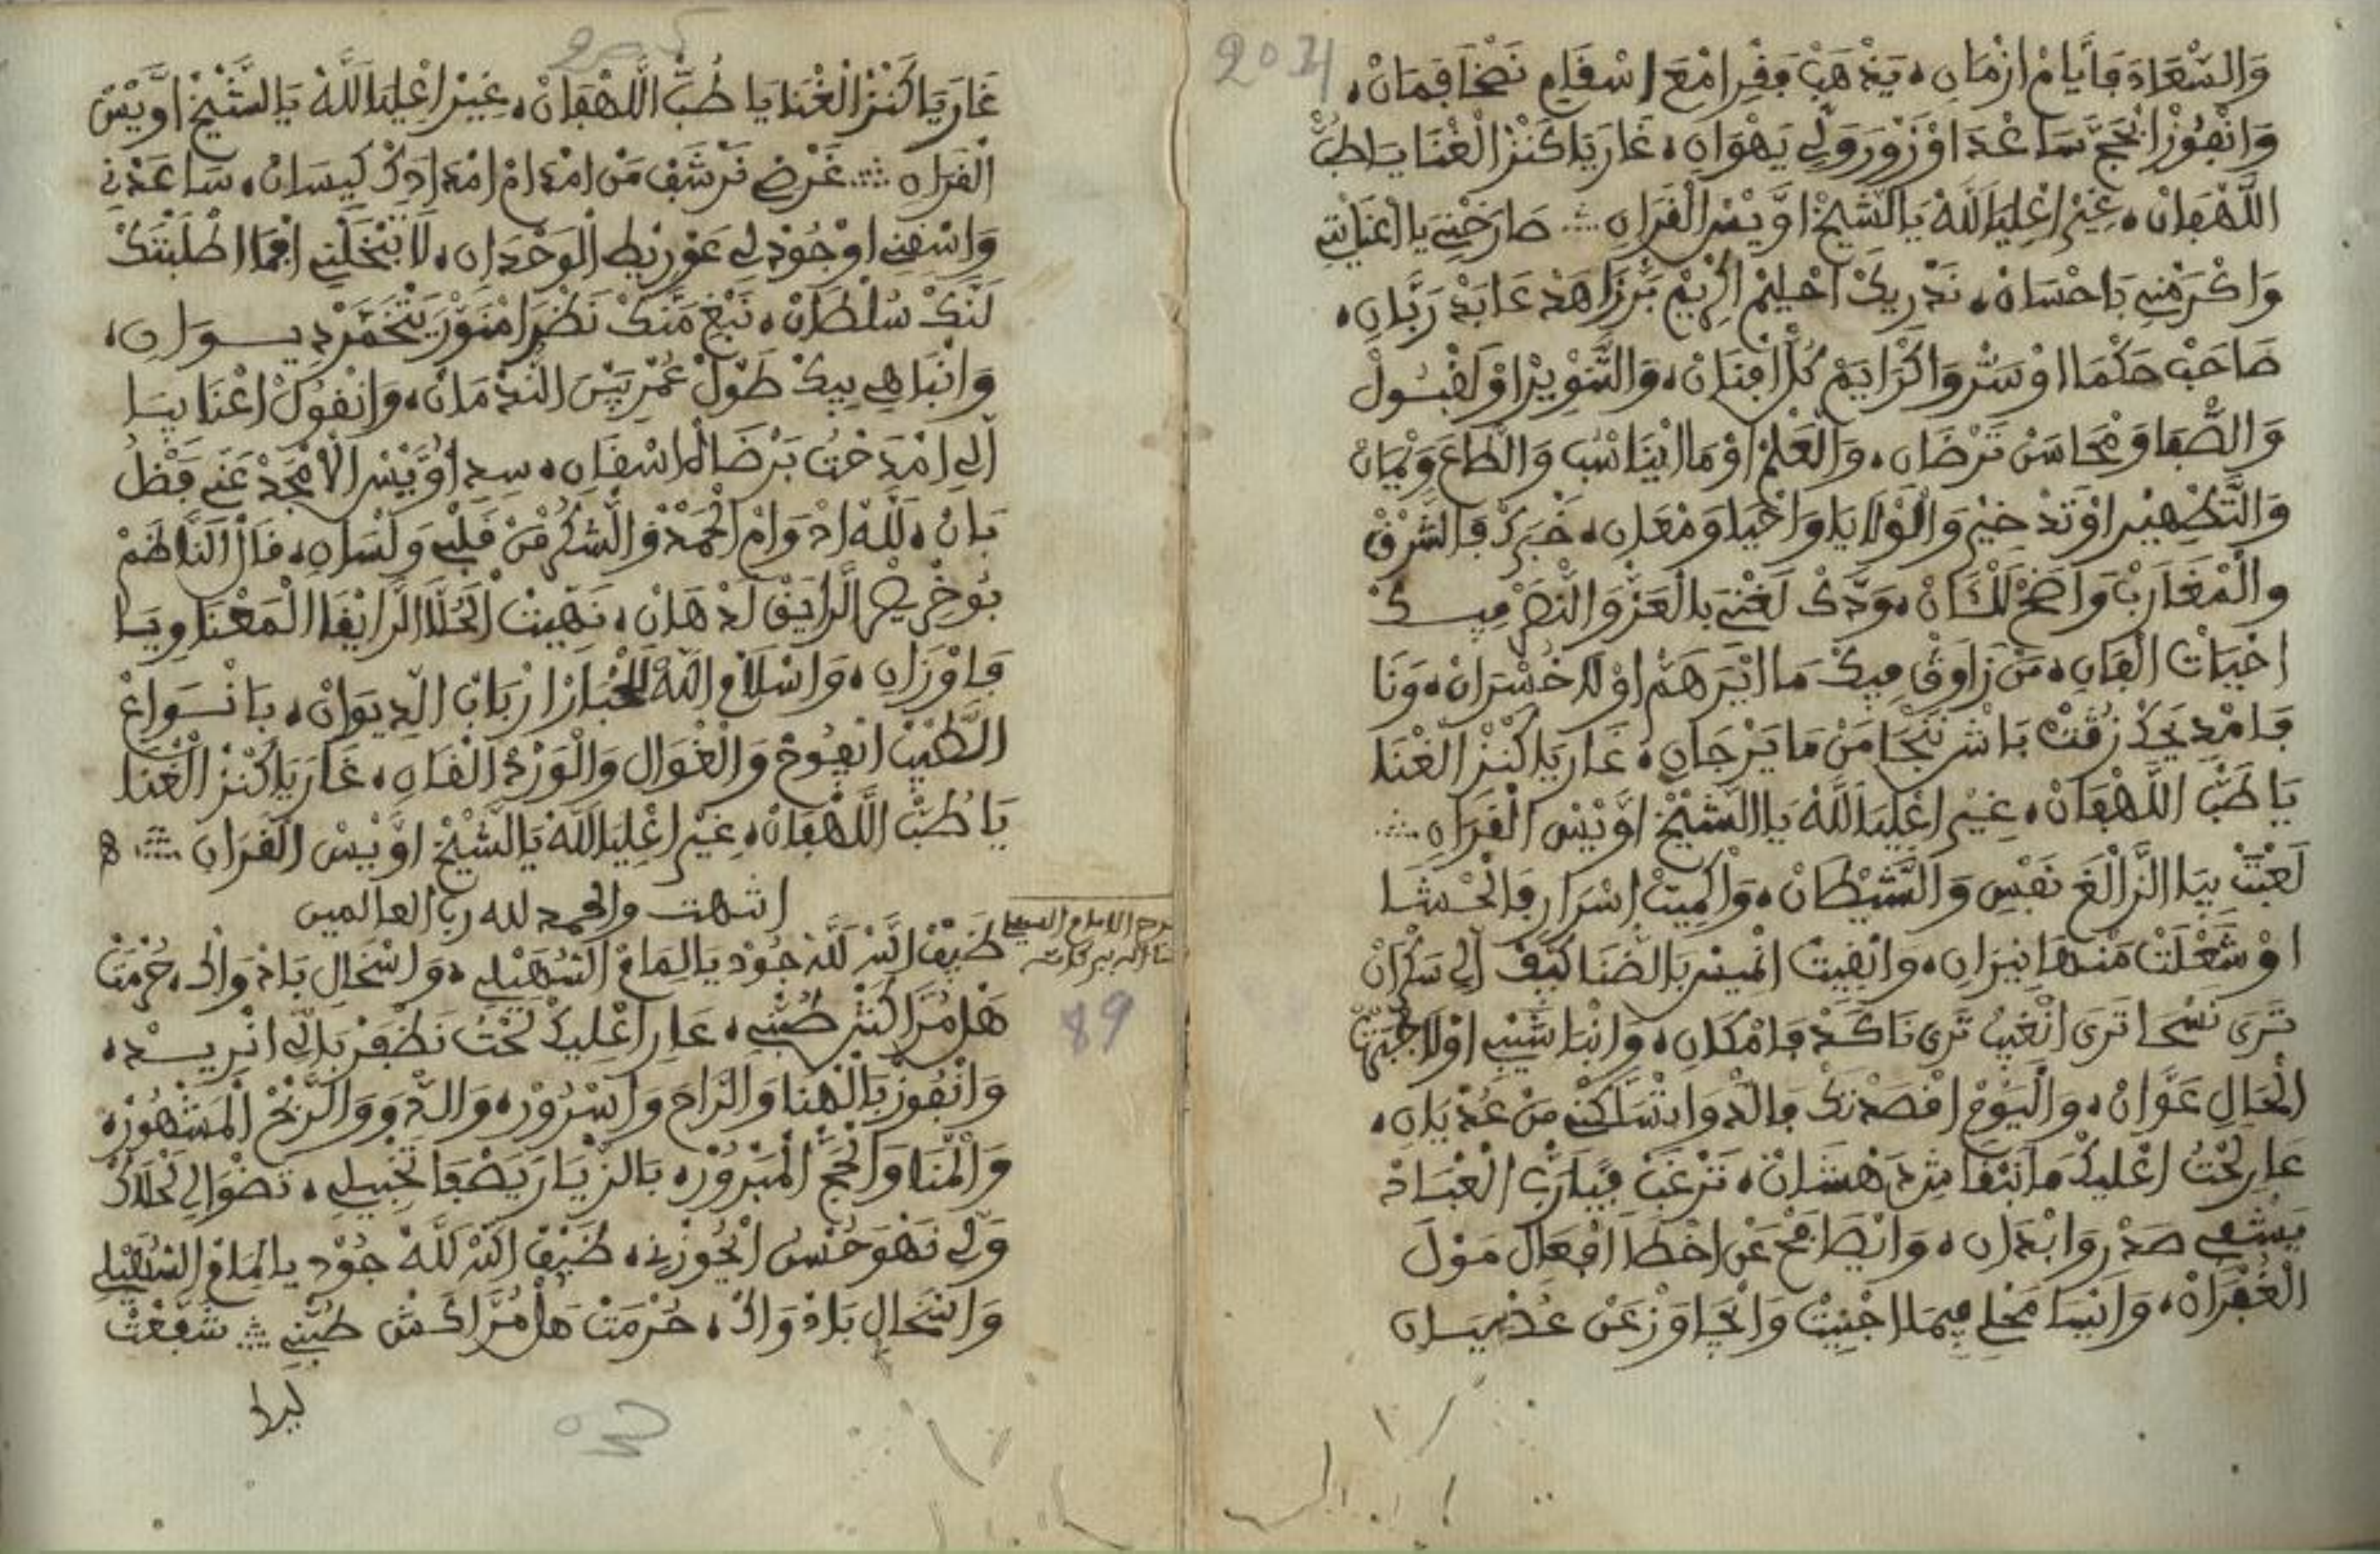 204
وَالسَّعَادَ فَأَيَّامْ ازْمَانِ، يَذْهَبْ فَفْرِ امْعَ اسْقَامِ نَضْحَا فَمَانْ،
وَانْفُوزْ الْحَجّ سَاعْدَ اوْ زَوْرَ وَلِّي يَهْوَانِ، غَارَ يَا كَنْزْ الْغْنَا يَا طُبّ
اللَّهْفَانْ، غِيرْ اعْلِيَا لَلَّهْ يَا الشِّيخْ اوَّيْسْ الْقَرَانِ ∴ صَارَخْنِي يَا اعْنَايْتِي
وَاكْرَمْنِي بَاحْسَانْ، نَدْرِيكْ احْلِيمْ اكْرِيمْ بَرّ زَاهَدْ عَابَدْ رَبَّانِ،
صَاحَبْ حَكْمَا اوْ سَرّ وَاكْرَايَمْ كُلّ افْنَانْ، وَالتَّنْوِيرْ اوْ لَقْبُولْ
وَالصّْفَا وَمْحَاسَنْ تَرْضَانِ، وَالْعَلْمْ اوْ مَا ايْنَاسْبْ وَالطَّاعَ وَيْمَانْ
وَالتَّطْهِيرْ اوْ تَدْخِيرْ وَالْوْلَايَا وَاحْيَا وَمْعَانِ، خَبْرَكْ فَالشَّرْقْ
وَالْمْغَارَبْ وَاضَحْ لَلْكَانْ، وَدَّكْ لَغْنِي بَالْعَزّ وَالنَّصْرْ فِيكْ
اخْيَاتْ الْفَانِ، مَنْ زَاوَقْ فِيكْ مَا ايْرَ هَمّ اوْ لَا خُسْرَانْ، وَنَا
فَامْدِيحَكْ زُقْتْ بَاشْ نَنْجَا مَنْ مَا يَرْجَانِ، غَارَ يَا كَنْزْ الْغْنَا
يَا طَبّ اللَّهْفَانْ، غِيرْ اعْلِيَا لَلَّهْ يَا الشِّيخْ اوَّيْسْ الْقَرَانِ ∴
لَعْبَتْ بِيَا النَّزَالْغَ نَفْسِ وَالشِّيْطَانْ، وَاكْمِيتْ اسْرَارِ فَالْحْشَا
اوْ شَعْلَتْ مَنْهَا نِيرَانِ، وَانْقِيتْ انْمِيسْ بَالضّْنَا كِيفْ الِي سَكْرَانْ
تَرَى نَسْحَا تَرَى انْغِيبْ تَرَى نَاكَدْ فَامْكَانِ، وَانْبَا شَيْبِ اوْ لَا جْبَرْتْ
الْحَالِ عَوَّانْ، وَالْيَوْمْ اقْصَدْتَكْ فَالدّْوَا تْسَلَّكْنِي مَنْ عُدْيَانِ،
عَارِ لَحْتُ اعْلِيكْ مَا نَبْقَاشِ دَهْشَانْ، نَرْغَبْ فِيَّا رَبّ الْعْبَادْ
يَشْفِي صَدْرِ وَابْدَانِ، وَانْصَافَحْ عَنْ اخْطَا افْعَالْ مَوْلَ
الْغُفْرَانْ، وَانْسَامَحْلِي فِيمَا اجْنِيتْ وَانْجَاوَزْ عَنْ عُصْيَانِ
205
غَارَ يَا كَنْزْ الْغْنَا يَا طُبّ اللَّهْفَانْ، غِيرْ اعْلِيَا لَلَّهْ يَا الشِّيخْ اوَّيْسْ
الْقَرَانِ ∴ غَرْضِ نَرْشَفْ مَنْ امْدَامْ امْدَادَكْ كِيسَانْ، سَاعَدْنِي
وَاسْقِنِي اوْ جُودْلِي عَوْرِيطْ الْوَحْدَانِ، لَا تَبْخَلْنِي افْمَا اطْلَبْتَكْ
لَنَّكْ سُلْطَانْ، نَبْغِ مَنَّكْ نَظْرَا مْنَوْرَ يَتْخَمَّرْ دِيوَانِ،
وَانْبَاهِي بِيكْ طُولْ عُمْرِ بَيْنْ النَّدْمَانْ، وَانْقُولْ اعْنَايَا
الِي امْدَحْتُ بَرْضَاهْ اسْقَانِ، سِيدِ اوَّيْسْ الْأَمْجَدْ عَنِّي فَضْلُ
بَانْ، لَلَّهْ ادْوَامْ الْحَمْدْ وَالشُّكْرْ مَنْ قَلْبِي وَلْسَانِ، قَالْ النَّاظَمْ
بُوخْرِيصْ الرَّايَقْ لَدْهَانْ، نَهِّيتْ الْحُلَّا الرَّايْقَا الْمَعْنَاوِيَا
فَاوْزَانِ، وَاسْلَامْ اللَّهْ لَلْخْبَارْ ارْبَابْ الدِّيوَانْ، بَانْسَوَاعْ
الطِّيبْ انْفُوحْ وَالْغْوَالِ وَالْوَرْدْ الْقَانِ، غَارَ يَا كَنْزْ الْغْنَا
يَا طُبّ اللَّهْفَانْ، غِيرْ اعْلِيَا لَلَّهْ يَا الشِّيخْ اوَّيْسْ الْقَرَانِ ∴ ه
انتهت والحمد لله رب العالمين
مدح الامام السهيلي
89
ضَيْفْ اللَّهْ لَلَّهْ جُودْ يَا لِمَامْ السّْهَيْلِي، وَاسْتَحَالِ بَادْوَاكْ، حُرْمَتْ
هْلْ مُرَّاكُشْ طُبّْنِي، عَارِ اعْلِيكْ لَحْتُ نَظْفَرْ بَالِّي انْرِيدْ،
وَانْفُوزْ بَالْهْنَا وَالرَّاحَ وَاسْرُورْ، وَالدّْوَ وَالرَّبْحْ الْمَشْهُورْ،
وَالْمْنَا وَالْحَجّْ الْمَبْرُورْ، بَالزّْيَارَ يَصْفَا تَخْبِيلِي، نَضْوَا لِي لَحْلَاكْ
وَلِّي نَهْوَ حُسْنُ انْحُوزْنِي، ضَيْفْ اللَّهْ لَلَّهْ جُودْ يَا لِمَامْ السّْهَيْلِي
وَاسْتَحَالِ بَادْوَاكْ، حُرْمَتْ هْلْ مُرَّاكُشْ طُبّْنِي ∴ شَفَّعْتْ